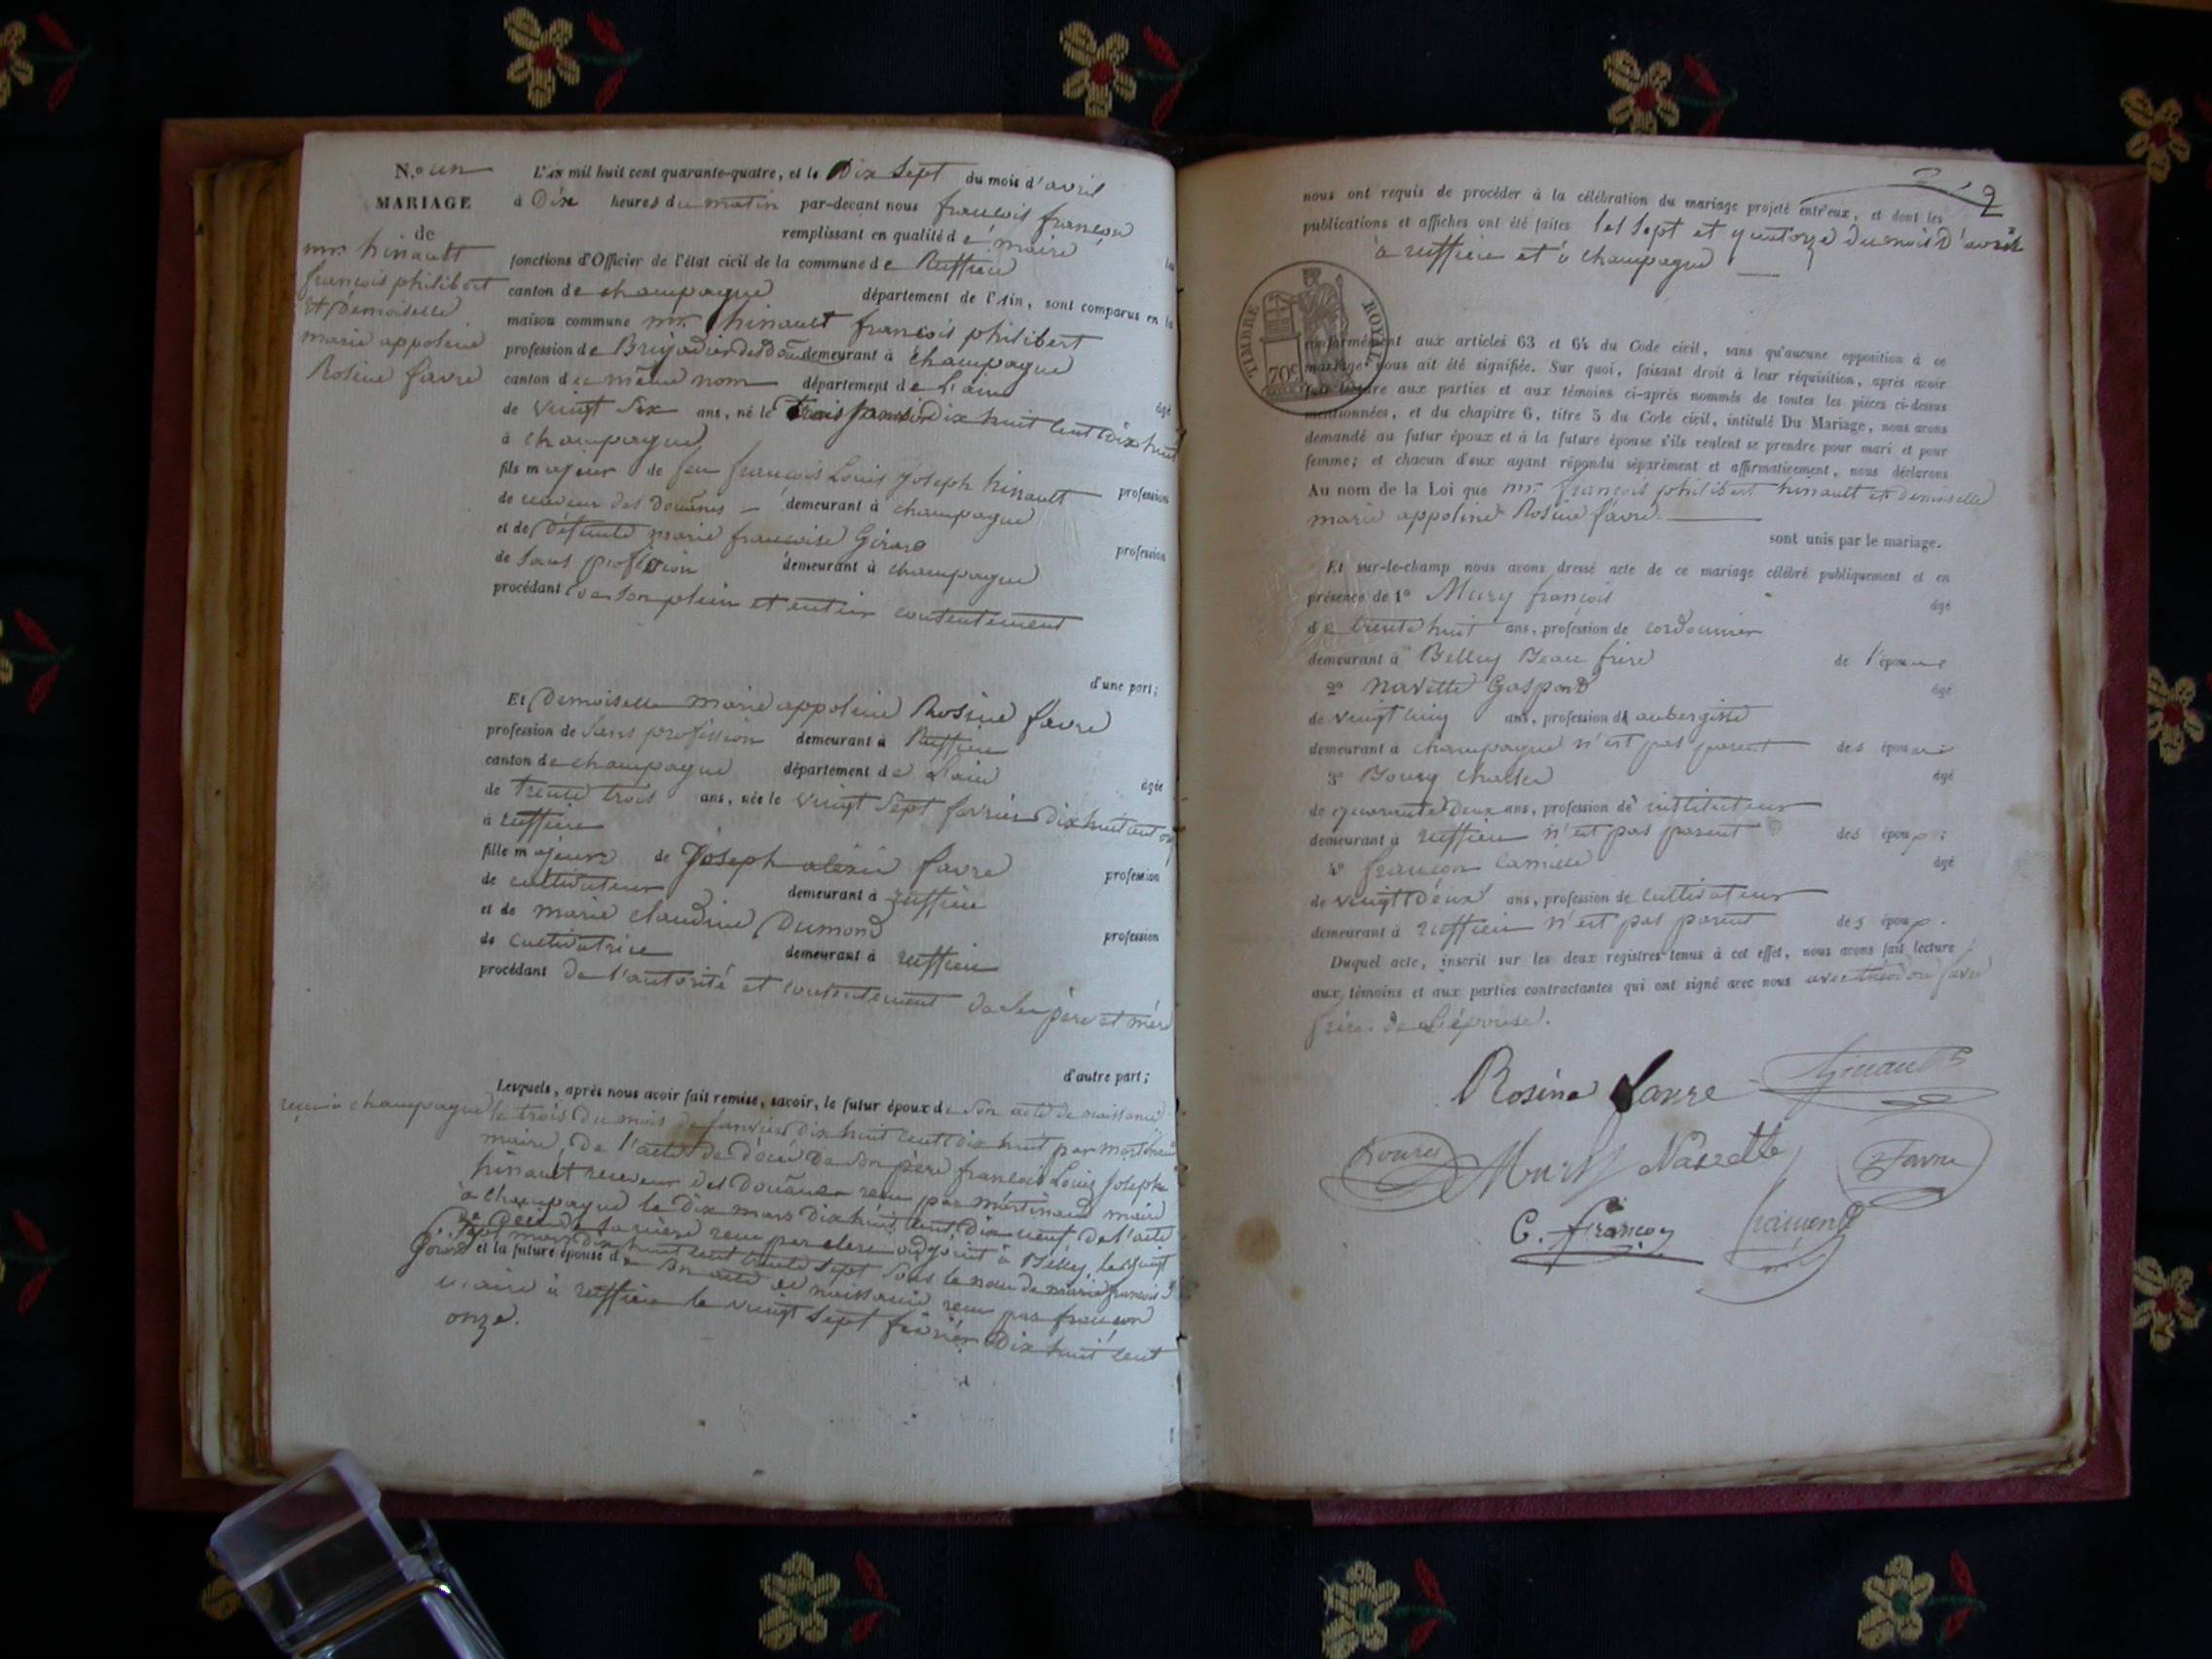 N.o un
MARIAGE
de
mr. hinault
françois philibert
et Demoiselle
marie appoline
Rosine favre
L'an mil huit cent quarante-quatre, et le Dix Sept du mois d'avril
à Dix heures du matin par-devant nous françois françon
remplissant en qualité de maire les
fonctions d'Officier de l'état civil de la commune de Ruffieu
canton de champagne département de l'Ain, sont comparus en la
maison commune mr. hinault françois philibert
profession de Brigadier des Dou demeurant à champagne
canton de même nom département de L'ain âgé
de vingt Six ans, né le trois janvier Dix huit cent Dix huit
à champagne
fils majeur de feu françois Louis Joseph hinault profession
de receveur des Douanes demeurant à champagne
et de Défunte marie françoise Girard profession
de Sans profession demeurant à champagne
procédant de Son plein et entier contentement
d'une part;
Et Demoiselle marie appoline Rosine favre
profession de Sans profession demeurant à Ruffieu
canton de champagne département de L'ain âgée
de trente trois ans, née le vingt Sept fevrier Dix huit cent
à ruffieu
fille majeure de Joseph alexis favre profession
de cultivateur demeurant à ruffieu
et de marie claudine Dumond profession
de cultivatrice demeurant à ruffieu
procédant de l'autorité et contentement de Ses père et mère
d'autre part;
Lesquels, après nous avoir fait remise, savoir, le futur époux de Son acte de naissance
reçu à champagne le trois du mois de janvier Dix huit cent Dix huit par
maire, De l'acte de décès de Son père françois Louis Joseph
hinault receveur des Douanes reçu par martinand maire
à champagne le Dix mars Dix huit cent Dix neuf de l'acte
de Décès de Sa mère reçu par adjoint à Belley le vingt
Sept mars dix huit cent trente Sept Sous le nom de marie françoise
Girard et la future épouse de Son acte de naissance reçu par françon
maire à ruffieu le vingt Sept février Dix huit cent
onze.
2
nous ont requis de procéder à la célébration du mariage projeté entr'eux, et dont les
publications et affiches ont été faites les Sept et quatorze du mois D'avril
à ruffieu et à champagne
TIMBRE ROYAL
70c
conformément aux articles 63 et 64 du Code civil, sans qu'aucune opposition à ce
mariage nous ait été signifiée. Sur quoi, faisant droit à leur réquisition, après avoir
fait lecture aux parties et aux témoins ci-après nommés de toutes les pièces ci-dessus
mentionnées, et du chapitre 6, titre 5 du Code civil, intitulé Du Mariage, nous avons
demandé au futur époux et à la future épouse s'ils veulent se prendre pour mari et pour
femme; et chacun d'eux ayant répondu séparément et affirmativement, nous déclarons
Au nom de la Loi que mr. françois philibert hinault et demoiselle
marie appoline Rosine favre
sont unis par le mariage.
Et sur-le-champ nous avons dressé acte de ce mariage célébré publiquement et en
présence de 1o Mury françois âgé
de trente huit ans, profession de cordonnier
demeurant à Belley Beau frère de l'épouse
2o navette Gaspard âgé
de vingt cinq ans, profession de aubergiste
demeurant à champagne n'est pas parent des époux
3o Boury charles âgé
de quarante Deux ans, profession de instituteur
demeurant à ruffieu n'est pas parent des époux;
4o françon camille âgé
de vingt Deux ans, profession de cultivateur
demeurant à ruffieu n'est pas parent des époux.
Duquel acte, inscrit sur les deux registres tenus à cet effet, nous avons fait lecture
aux témoins et aux parties contractantes qui ont signé avec nous avec favre
frère de L'épouse.
Rosine Favre Hinault
Mury Navette Favre
C. Françon françon